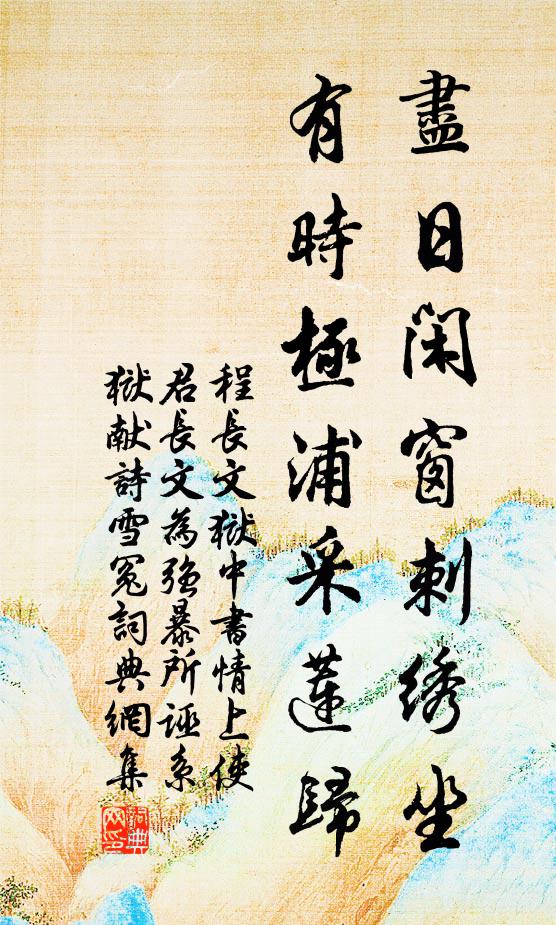 盡日閑窗刺绣坐
有時極浦采蓮歸
程長文獄中書情上使
君長文為強暴所誣系
獄獻詩雪冤詞典網集
詞典
网印